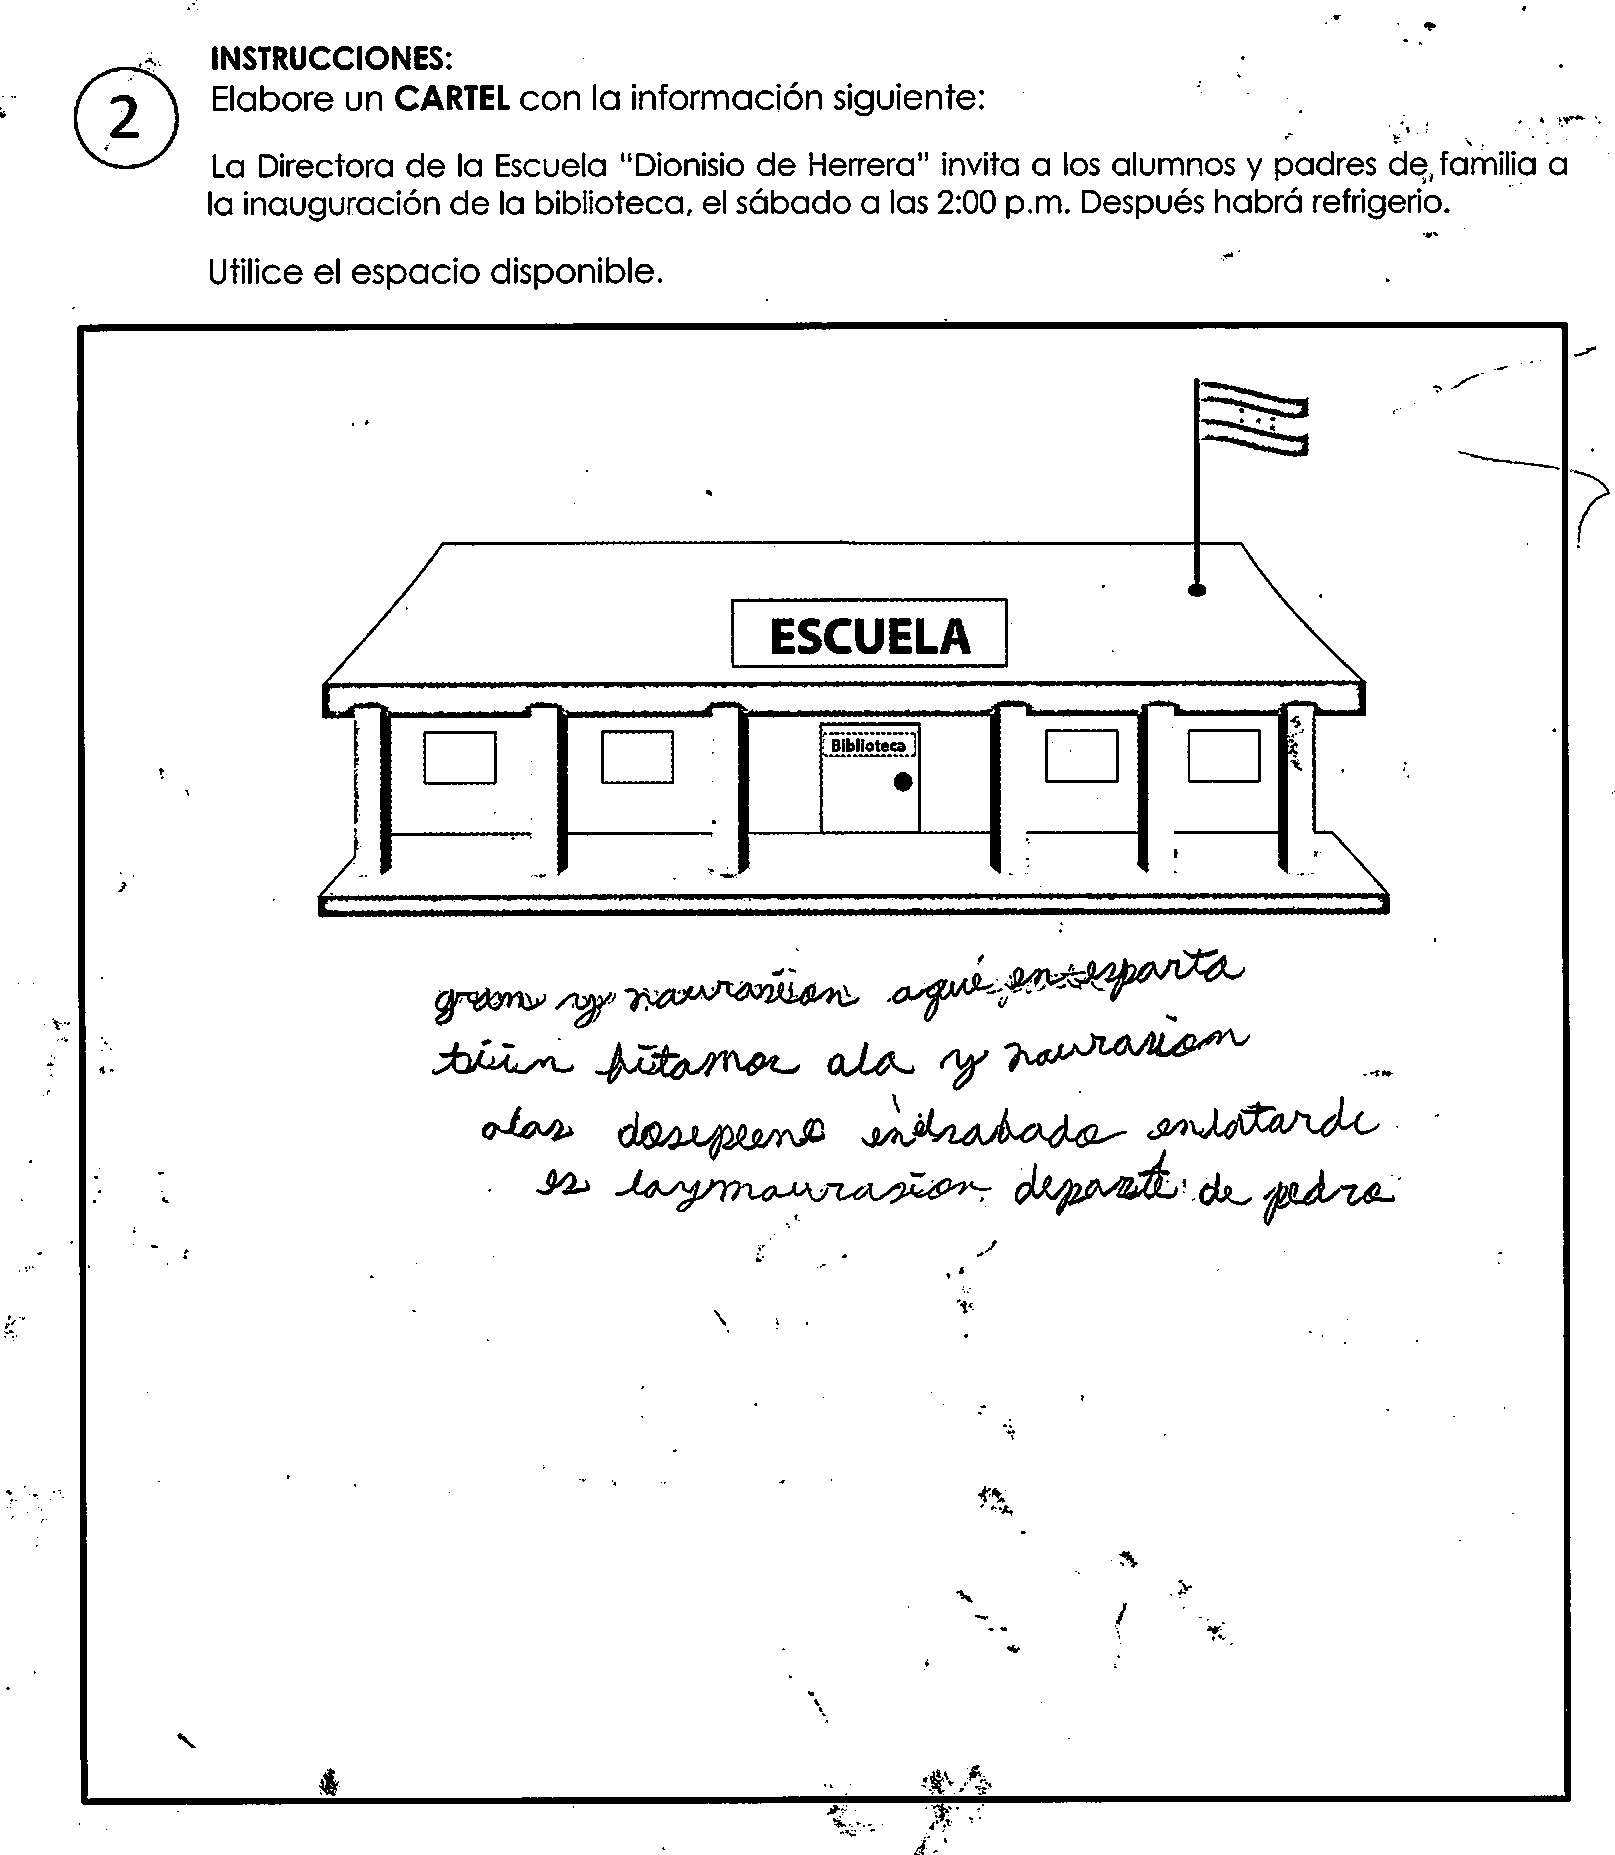 INSTRUCCIONES:
2
Elabore un CARTEL con la información siguiente:
La Directora de la Escuela "Dionisio de Herrera" invita a los alumnos y padres de familia a
la inauguración de la biblioteca, el sábado a las 2:00 p.m. Después habrá refrigerio.
Utilice el espacio disponible.
ESCUELA
Biblioteca
gran y naurasion aqué en esparta
bitamos ala y naurasion
alas dosepeeme enelsabado enlatarde
es laymaurasion departe de pedro